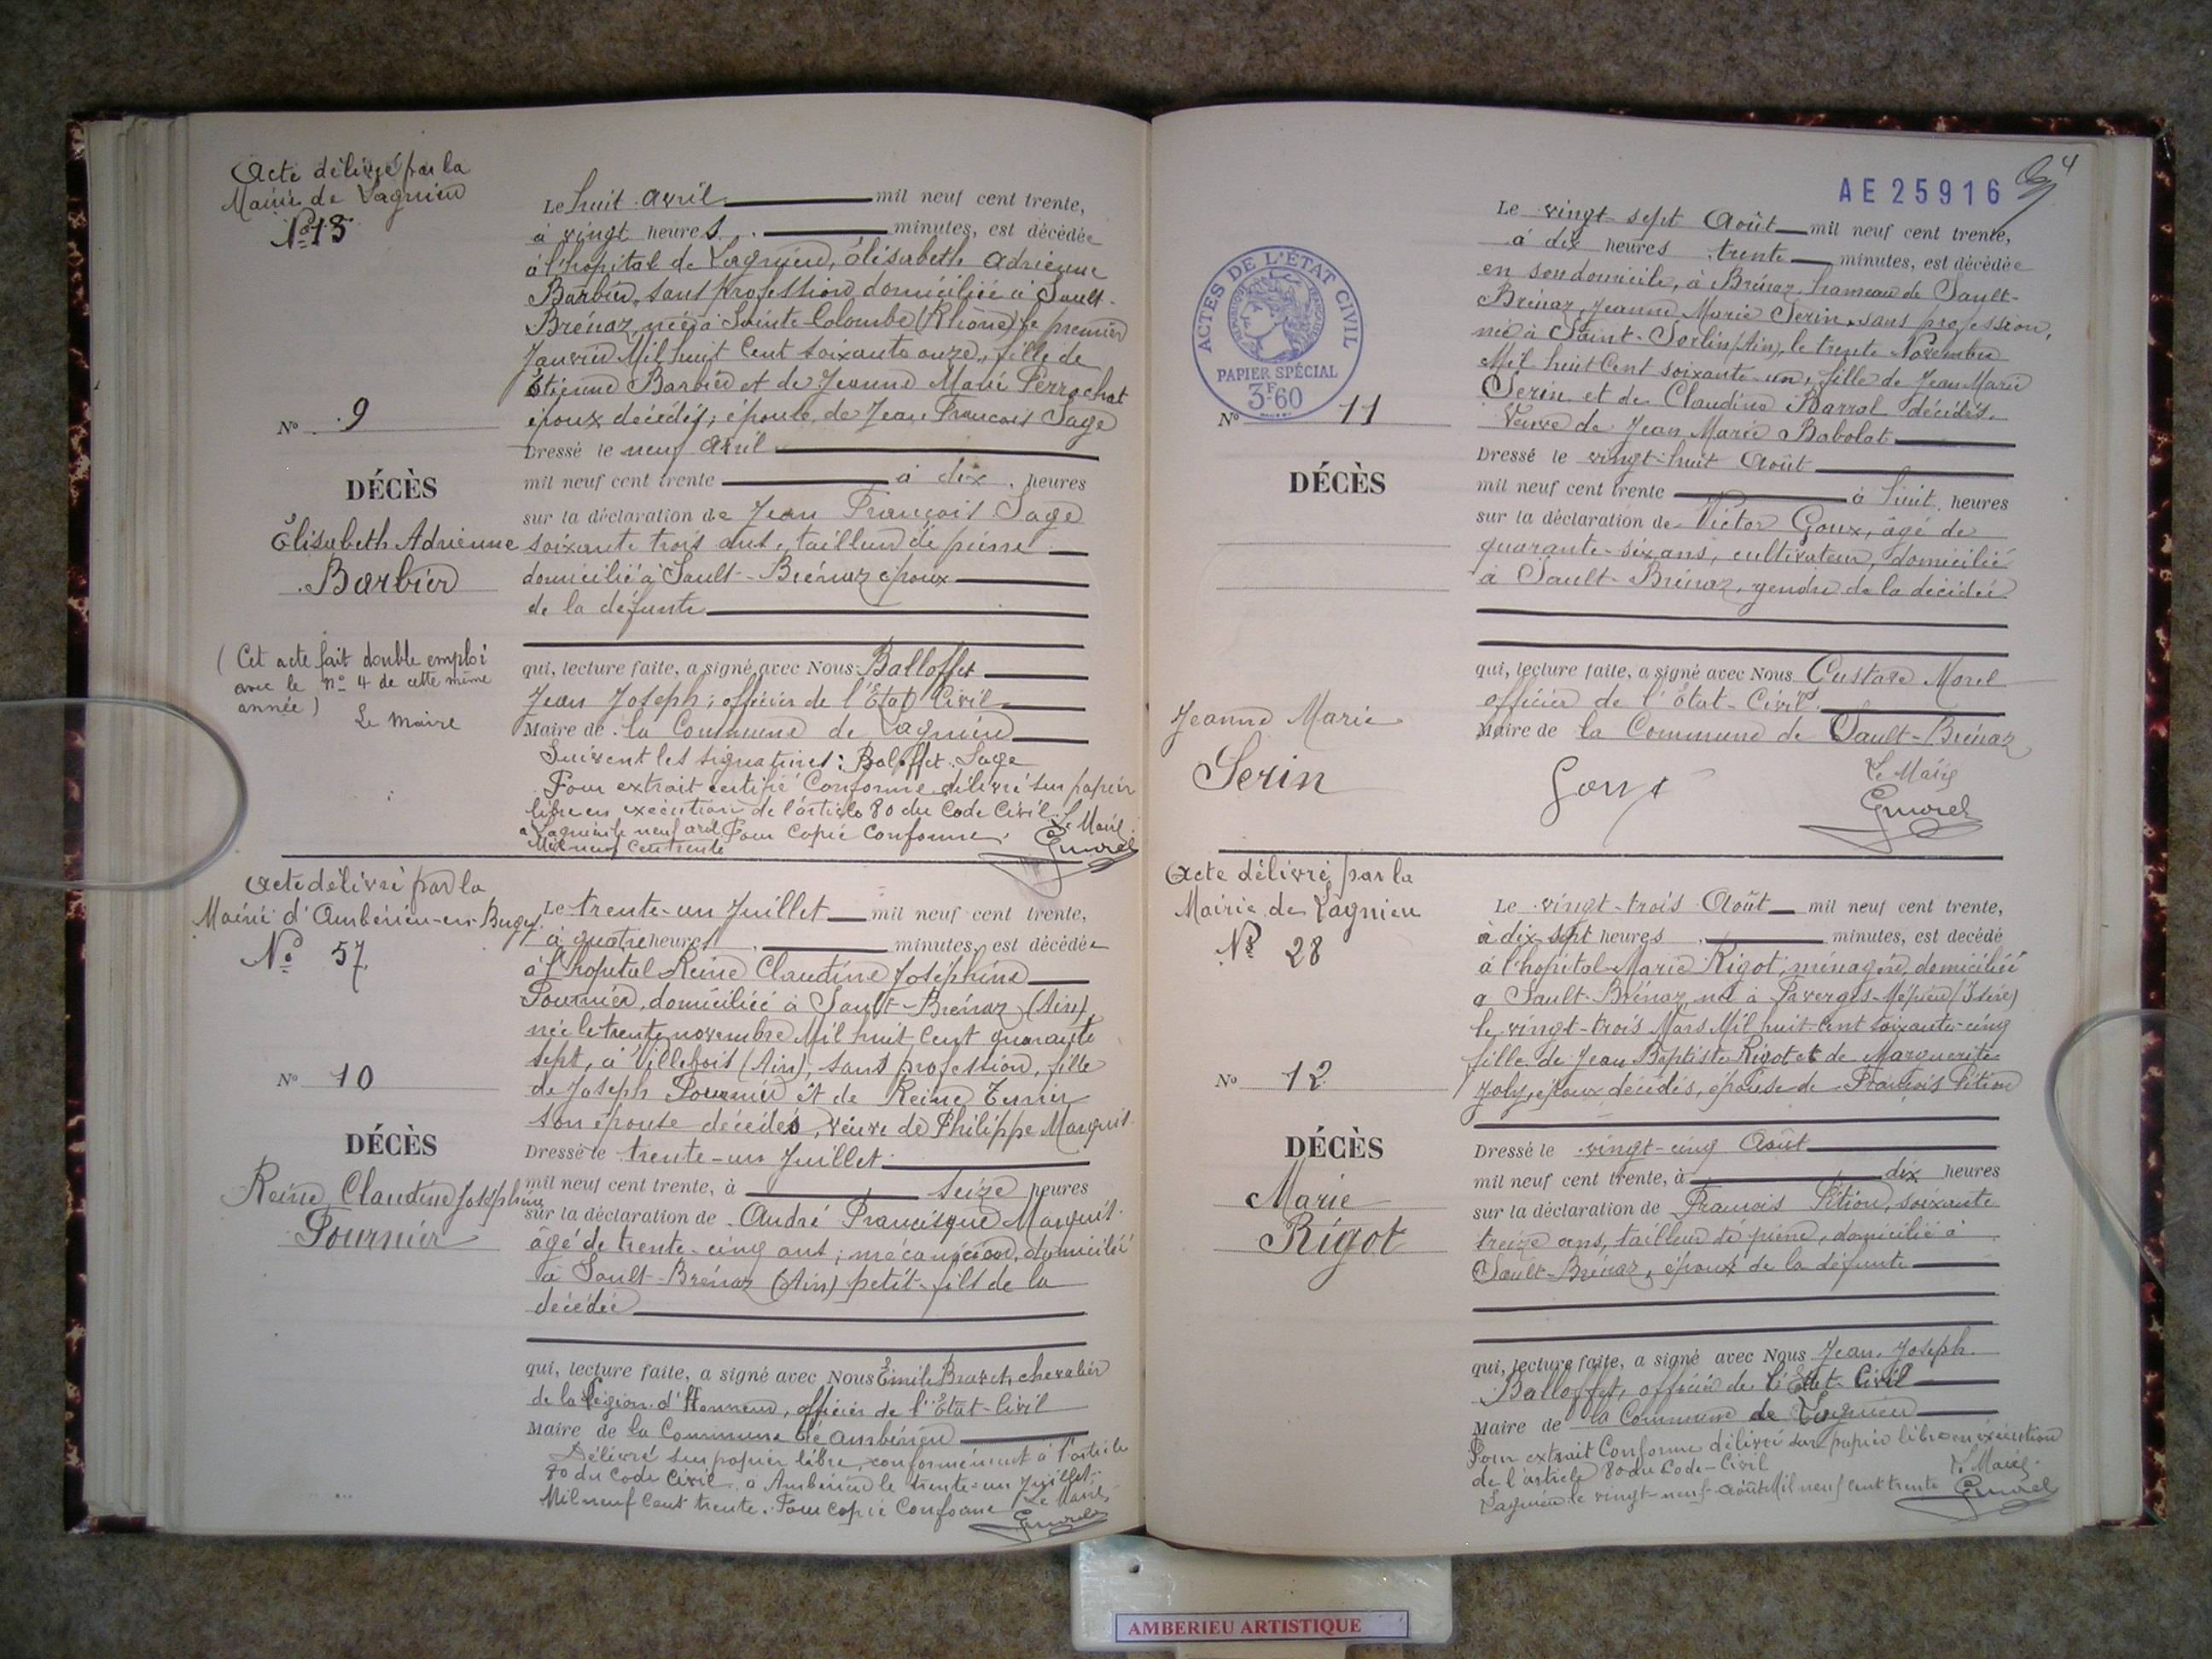 Acte délivré par la
Mairie de Lagnieu
No 15
No 9
DÉCÈS
Élisabeth Adrienne
Barbier
(Cet acte fait double emploi
avec le no 4 de cette même
année)
Le Maire
Le huit avril mil neuf cent trente,
à vingt heures minutes, est décédée
à l'hopital de Lagnieu, élisabeth adrienne
Barbier, sans profession domiciliée à Sault-
Brénaz, née à Sainte Colombe (Rhône) le premier
Janvier Mil huit Cent soixante onze, fille de
Étienne Barbier et de Jeanne Marie Perrachat
époux décédés; épouse de Jean François Sage
Dressé le neuf avril
mil neuf cent trente à dix heures
sur la déclaration de Jean François Sage
soixante trois ans, tailleur de pierre
domicilié à Sault-Brénaz époux
de la défunte
qui, lecture faite, a signé avec Nous: Balloffet
Jean Joseph; officier de l'État Civil
Maire de la Commune de Lagnieu
Suivent les signatures: Baloffet. Sage
Pour extrait certifié Conforme délivré sur papier
libre en exécution de l'article 80 du Code Civil. Le Maire
à Lagnieu le neuf avril Pour Copie Conforme
Mil neuf cent trente Gmorel
Acte délivré par la
Mairie d'Ambérieu-en-Bugey
No 57
No 10
DÉCÈS
Reine Claudine Joséphine
Fournier
Le trente-un Juillet mil neuf cent trente,
à quatre heures minutes, est décédée
à l'hopital Reine Claudine Joséphine
Fournier, domiciliée à Sault-Brénaz (Ain),
née le trente novembre Mil huit Cent quarante
sept, à Villebois (Ain), sans profession, fille
de Joseph Fournier et de Reine
son épouse décédés, veuve de Philippe Marquis
Dressé le trente-un Juillet
mil neuf cent trente, à seize heures
sur la déclaration de André Francisque Marquis
âgé de trente-cinq ans; mécanicien, domicilié
à Sault-Brénaz (Ain) petit-fils de la
décédée
qui, lecture faite, a signé avec Nous Émile Bravet, chevalier
de la Légion d'Honneur, officier de l'État-Civil
Maire de la Commune de Ambérieu
Délivré sur papier libre, conformément à l'article
80 du Code Civil à Ambérieu le trente-un Juillet
Mil neuf Cent trente. Pour copie Conforme Le Maire
Gmorel
AE 25916
4
ACTES DE L'ÉTAT CIVIL
RÉPUBLIQUE FRANÇAISE
PAPIER SPÉCIAL
3F60
No 11
DÉCÈS
Jeanne Marie
Serin
Le vingt-sept Août mil neuf cent trente,
à dix heures trente minutes, est décédée
en son domicile, à Brénaz hameau de Sault-
Brénaz, Jeanne Marie Serin, sans profession,
née à Saint-Sorlin (Ain), le trente Novembre
Mil huit Cent soixante-un, fille de Jean Marie
Serin et de Claudine Barral décédés.
Veuve de Jean Marie Babolat
Dressé le vingt-huit Août
mil neuf cent trente à huit heures
sur la déclaration de Victor Goux, âgé de
quarante-six ans, cultivateur, domicilié
à Sault-Brénaz, gendre de la décédée
qui, lecture faite, a signé avec Nous Gustave Morel
officier de l'État-Civil
Maire de la Commune de Sault-Brénaz
Goux
Le Maire
Gmorel
Acte délivré par la
Mairie de Lagnieu
No 28
No 12
DÉCÈS
Marie
Rigot
Le vingt-trois Août mil neuf cent trente,
à dix-sept heures minutes, est décédé
à l'hopital Marie Rigot, ménagère, domiciliée
a Sault-Brénaz née à Faverges-Mépieu (Isère)
le vingt-trois Mars Mil huit Cent soixante-cinq
fille de Jean Baptiste Rigot et de Marguerite
Joly, époux décédés, épouse de François Pétion
Dressé le vingt-cinq Août
mil neuf cent trente, à dix heures
sur la déclaration de François Pétion, soixante
treize ans, tailleur de pierre, domicilié à
Sault-Brénaz, époux de la défunte
qui, lecture faite, a signé avec Nous Jean Joseph
Balloffet, officier de l'État-Civil
Maire de la Commune de Lagnieu
Pour extrait Conforme délivré sur papier libre en exécution
de l'article 80 du Code-Civil Le Maire
Lagnieu le vingt-neuf Août Mil neuf Cent trente Gmorel
AMBERIEU ARTISTIQUE